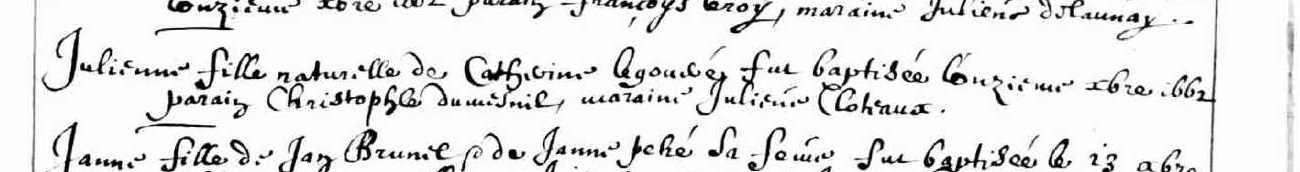 Lonzieme xbre 1662 parain Françoys Leroy, maraine Juliene delaunay..
Julienne fille naturelle de Catherine legouvéz fut baptisée Lonzieme xbre 1662
parain Christophle dumesnil, maraine Juliene Cloteaux.
Janne fille de Jan Brunel & de Janne peké sa feme fut baptiseé le 13 xbre